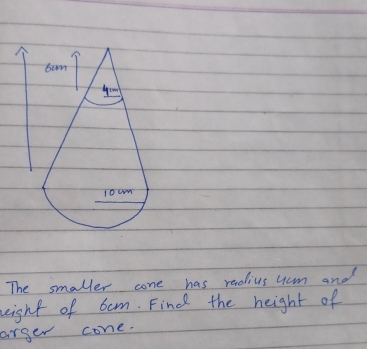 6cm
4cm
10cm
The smaller cone has radius 4cm and
eight of 6cm. Find the height of
arger cone.